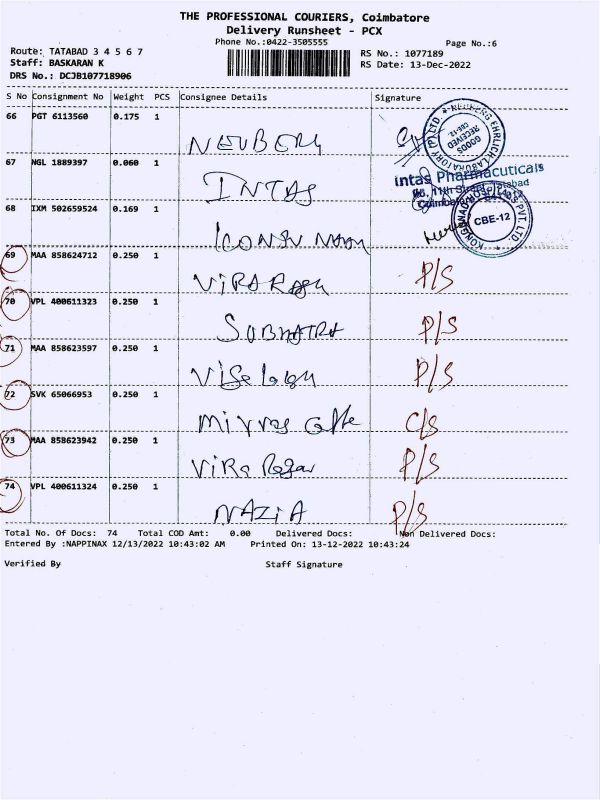 THE PROFESSIONAL COURIERS, Coimbatore
Delivery Runsheet - PCX
Phone No.:0422-3505555
Page No.:6
Route: TATABAD 3 4 5 6 7
RS No.: 1077189
Staff: BASKARAN K
RS Date: 13-Dec-2022
DRS No.: DCJB107718906
S No Consignment No Weight PCS Consignee Details Signature
66 PGT 6113560 0.175 1 NEUBERG
NEUBERG EHRLICH LABORATORY (P) LTD.
GOODS RECEIVED
CBE-12
67 NGL 1889397 0.060 1 INTAS
Intas Pharmaceuticals
68 IXM 502659524 0.169 1
PVT. LTD.
CBE-12
69 MAA 858624712 0.250 1 P/S
70 VPL 400611323 0.250 1 SUBHATRA P/S
71 MAA 858623597 0.250 1 P/S
72 SVK 65066953 0.250 1 C/S
73 MAA 858623942 0.250 1 P/S
74 VPL 400611324 0.250 1 NAZIA P/S
Total No. Of Docs: 74 Total COD Amt: 0.00 Delivered Docs: Non Delivered Docs:
Entered By :NAPPINAX 12/13/2022 10:43:02 AM Printed On: 13-12-2022 10:43:24
Verified By Staff Signature